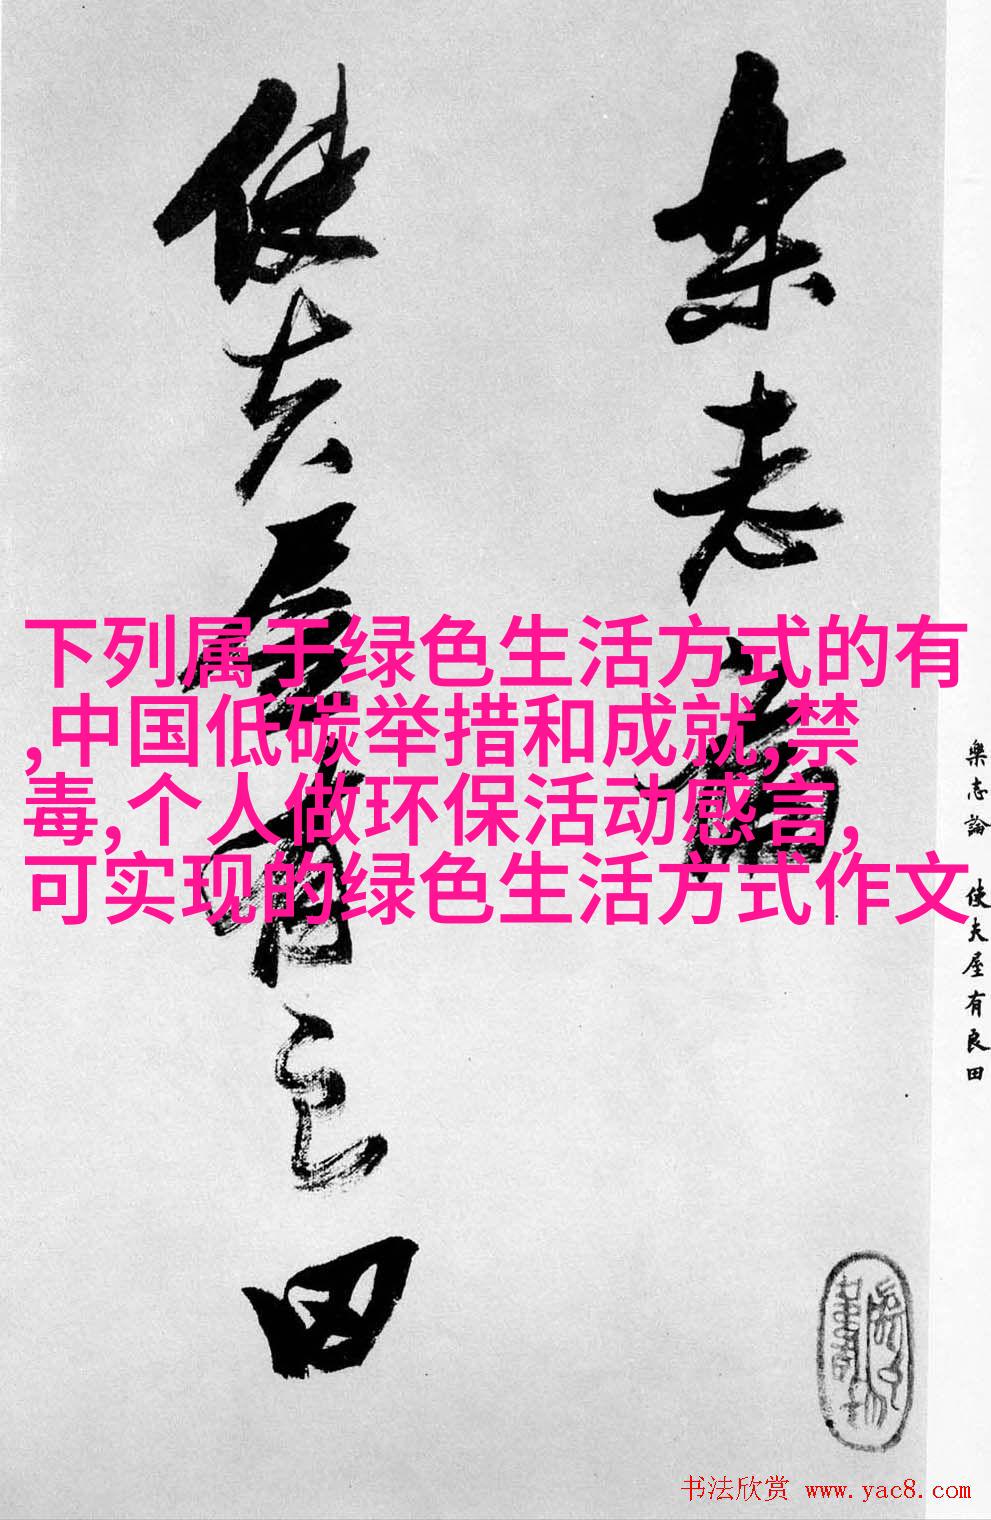 樂志論
使夫屋有良田
下列属于绿色生活方式的有
,中国低碳举措和成就,禁
毒,个人做环保活动感言,
可实现的绿色生活方式作文
樂志論 使夫屋有良田
书法欣赏 www.yac8.com